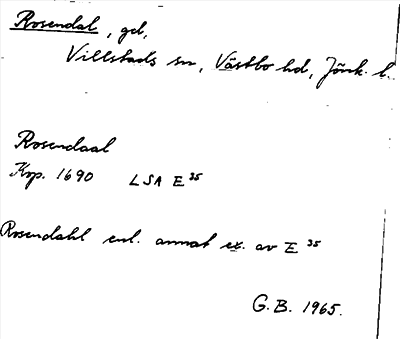 Rosendal, gd,
Villstads sn, Västbo hd, Jönk. l.
Rosendaal
Kop. 1690 LSA E 35
Rosendahl enl. annat ex. av E 35
G.B. 1965.